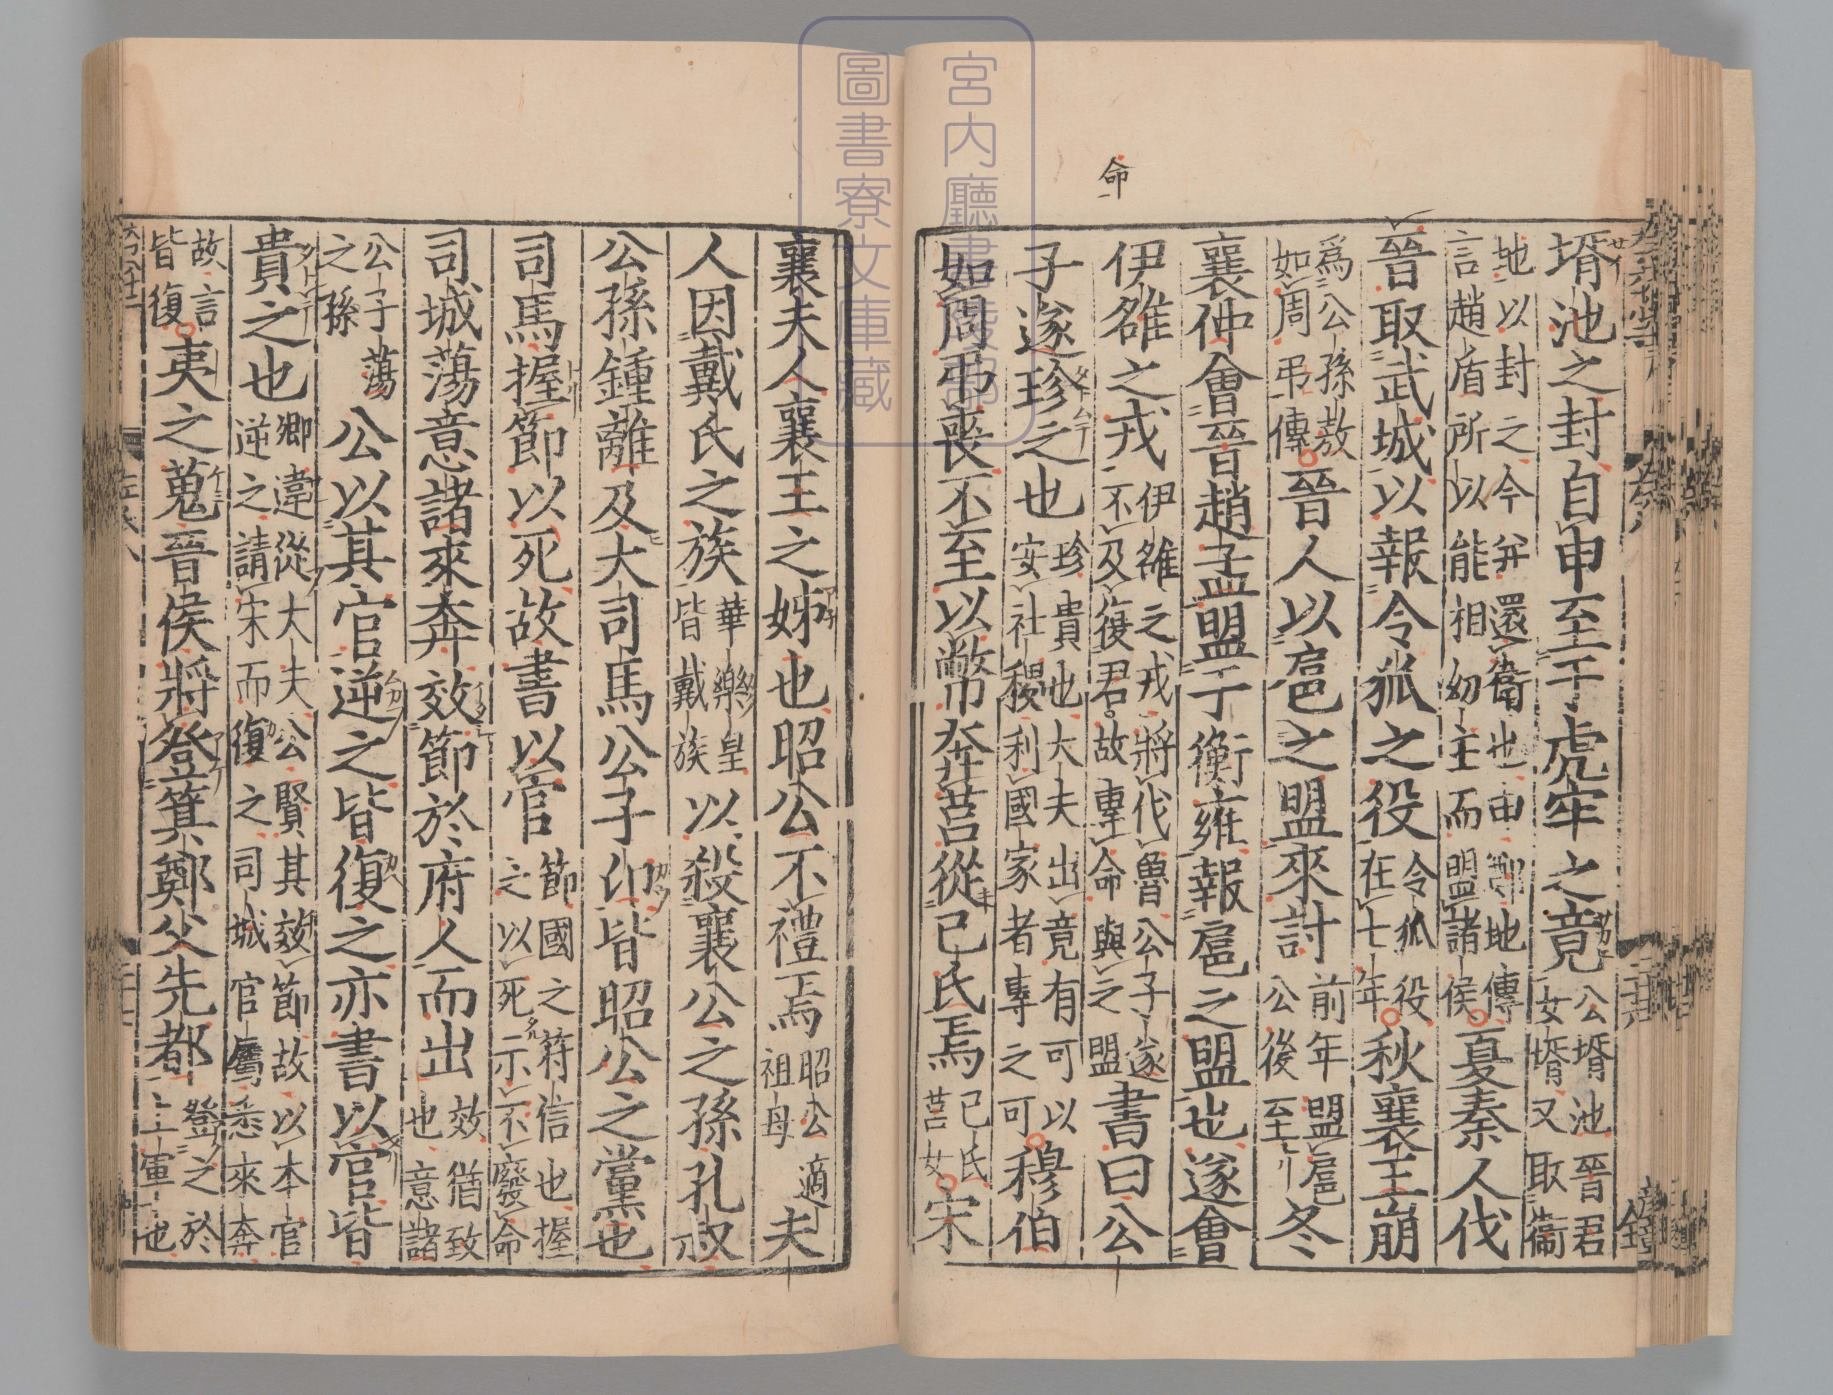 命
壻池之封自申至于虎牢之竟公壻池晉君女壻又取衛
地以封之今并還衛也申鄭地傳言趙盾所以能相幼主而盟諸侯夏秦人伐
晉取武城以報令狐之役令狐役在七年秋襄王崩
爲公孫敖如周弔傳晉人以扈之盟來討前年盟扈公後至冬
襄仲會晉趙孟盟于衡雍報扈之盟也遂會
伊雒之戎伊雒之戎將伐魯公子遂不及復君故專命與之盟書曰公
子遂珍之也珍貴也大夫出竟有可以安社稷利國家者專之可穆伯
如周弔喪不至以幣奔莒從己氏焉己氏莒女宋
襄夫人襄王之姊也昭公不禮焉昭公適祖母夫
人因戴氏之族華樂皇皆戴族以殺襄公之孫孔叔
公孫鍾離及大司馬公子卬皆昭公之黨也
司馬握節以死故書以官節國之符信也握之以死示不廢命
司城蕩意諸來奔效節於府人而出效猶致也意諸
公子蕩之孫公以其官逆之皆復之亦書以官皆
貴之也卿違從大夫公賢其效節故以本官逆之請宋而復之司城官屬悉來奔
故言皆復夷之蒐晉侯將登箕鄭父先都登之於上軍也
宮內廳書陵部
圖書寮文庫藏